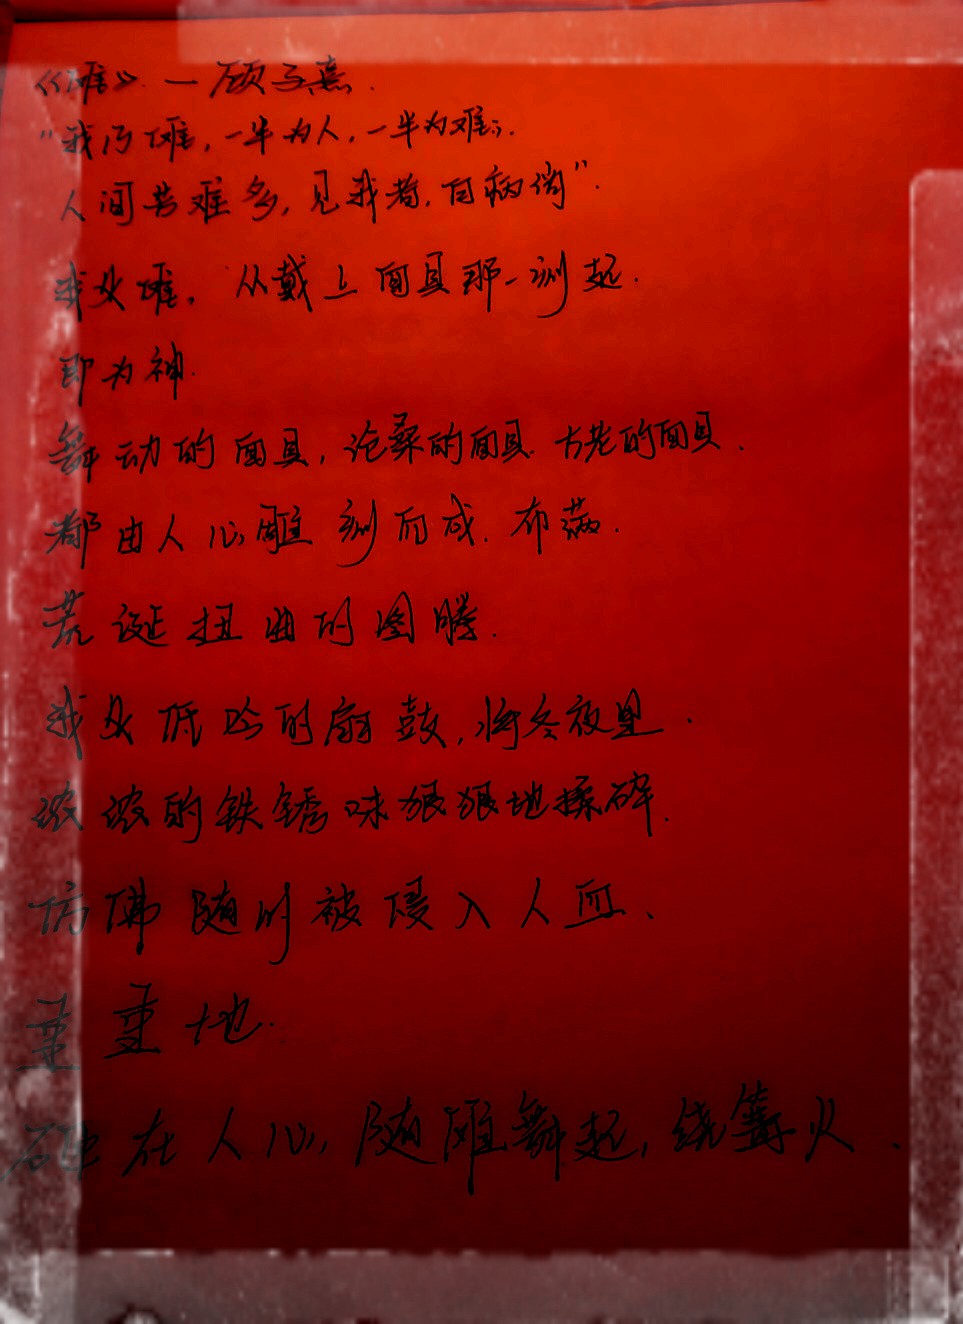 《傩》—顾子熹.
"我乃傩,一半为人,一半为难;.
人间苦难多,见我者,百病消".
我以傩。从戴上面具那一刻起.
即为神.
舞动的面具,沧桑的面具.古老的面具.
都由人心雕刻而成.布满.
荒诞扭曲的图腾.
我以低沉的扇鼓,将冬夜里.
浓浓的铁锈味狠狠地揉碎.
仿佛随时被侵入人血.
重重地.
砸在人心,随傩舞起,绕篝火.